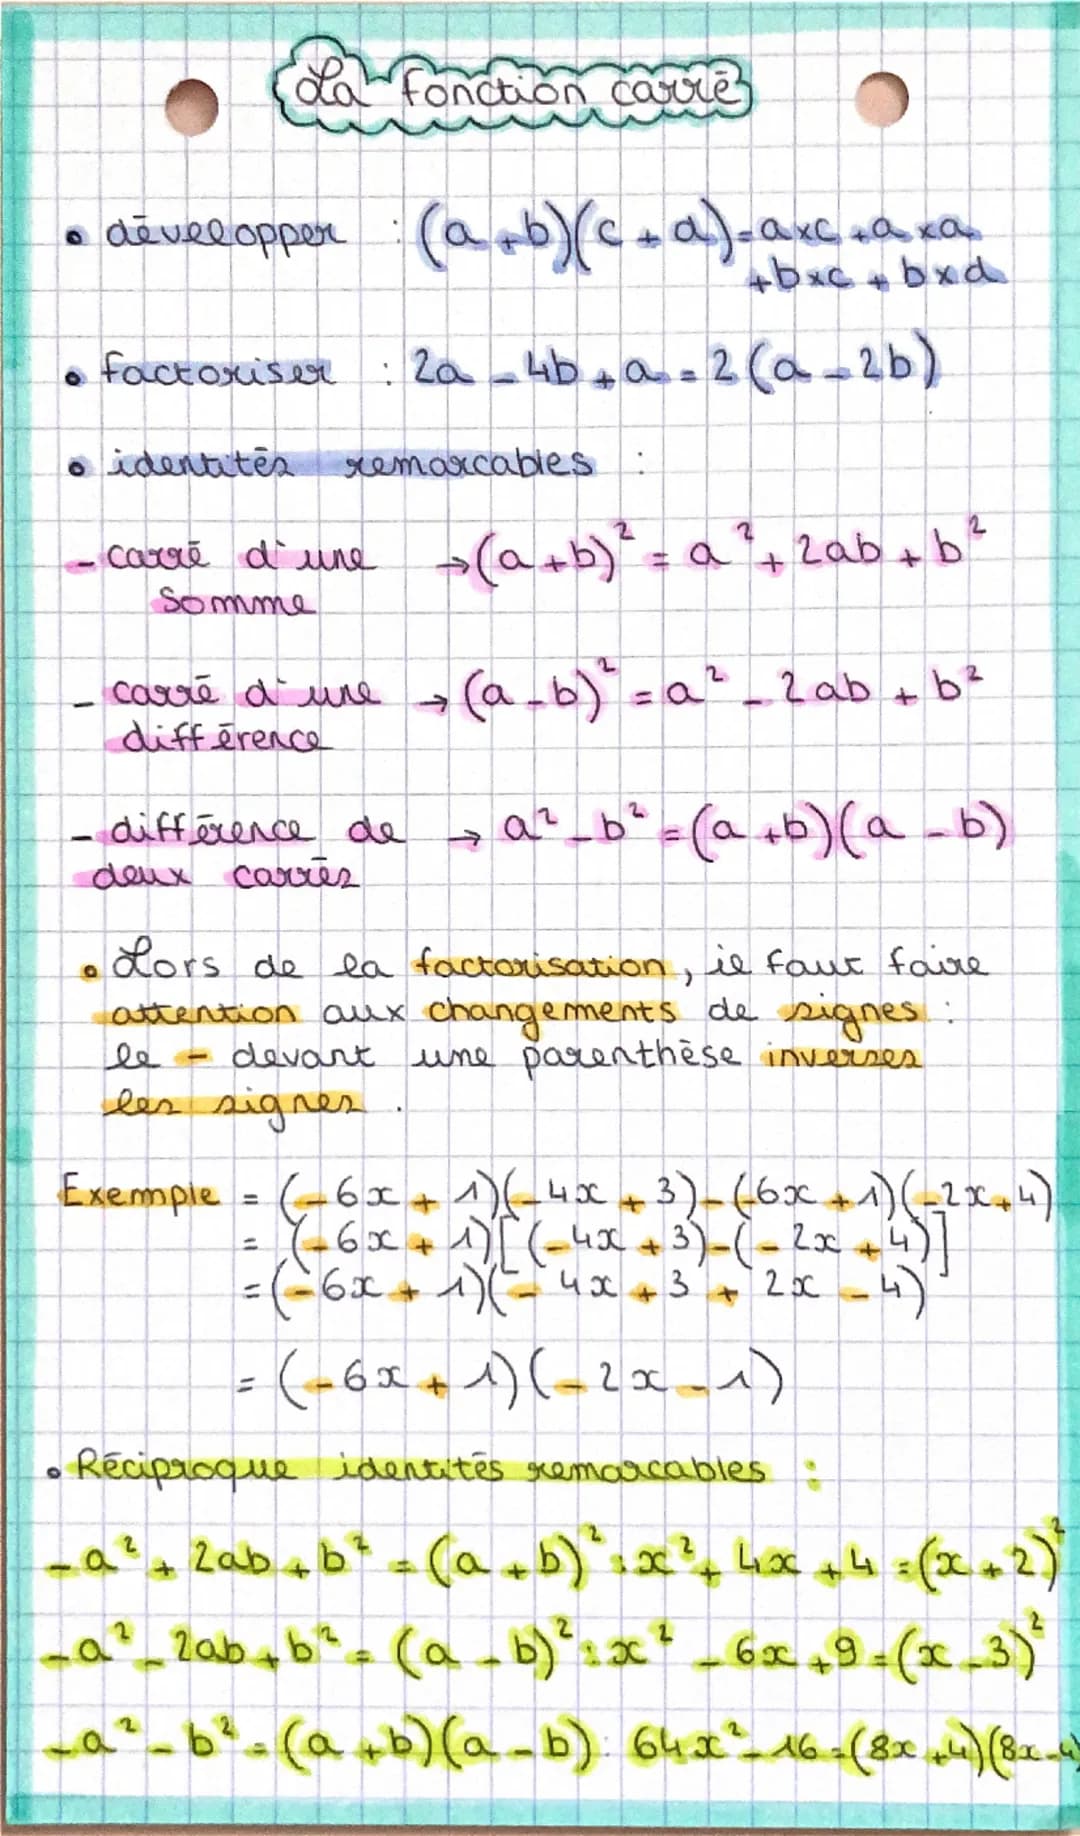 La fonction carré
• développer : (a+b)(c+d)=a×c+a×a
+b×c+b×d
• factoriser : 2a-4b+a=2(a-2b)
• identités remarcables :
- carré d'une → (a+b)² = a²+2ab+b²
somme
- carré d'une → (a-b)² = a²-2ab+b²
différence
- différence de → a²-b²=(a+b)(a-b)
deux carrés
• Lors de la factorisation, il faut faire
attention aux changements de signes :
le - devant une parenthèse inverses
les signes.
Exemple = (-6x+1)(-4x+3)-(-6x+1)(-2x+4)
= (-6x+1)[(-4x+3)-(-2x+4)]
= (-6x+1)(-4x+3+2x-4)
= (-6x+1)(-2x-1)
• Réciproque identités remarcables :
- a²+2ab+b² = (a+b)² : x²+4x+4=(x+2)²
- a²-2ab+b² = (a-b)² : x²-6x+9=(x-3)²
- a²-b²=(a+b)(a-b): 64x²-16=(8x+4)(8x-4)